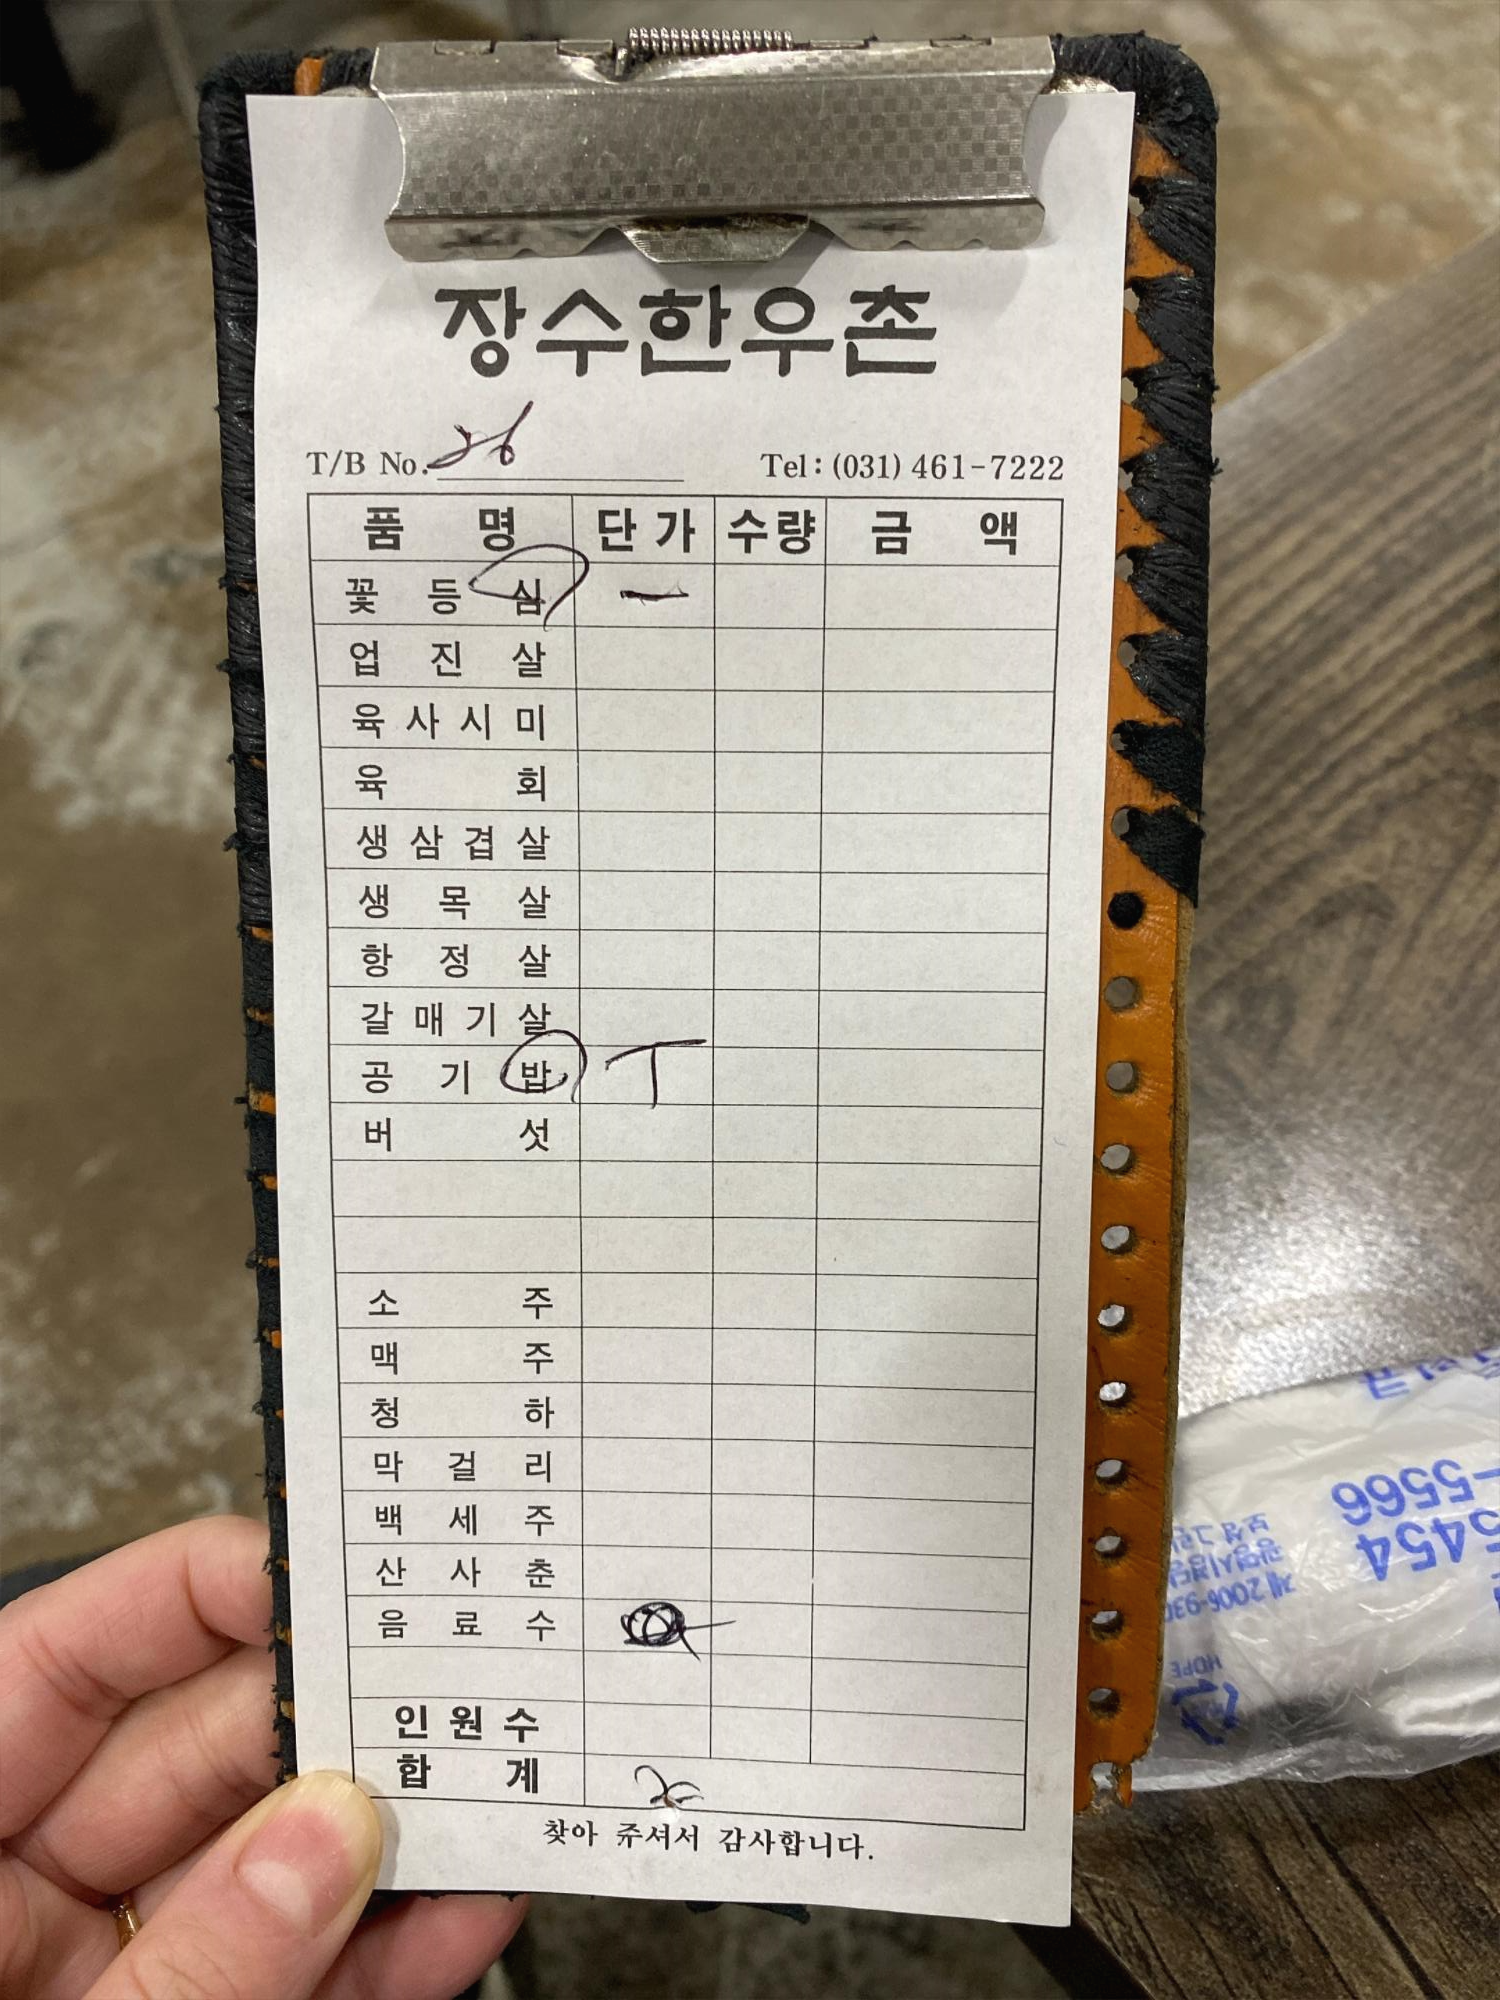 장수한우촌
T/B No. 26 Tel : (031) 461-7222
품 명 단 가 수량 금 액
꽃 등 심 一
업 진 살
육 사 시 미
육 회
생 삼 겹 살
생 목 살
항 정 살
갈 매 기 살
공 기 밥 T
버 섯
소 주
맥 주
청 하
막 걸 리
백 세 주
산 사 춘
음 료 수
인 원 수
합 계
찾아 주셔서 감사합니다.
5454
-5566
제2006-930
HDPE